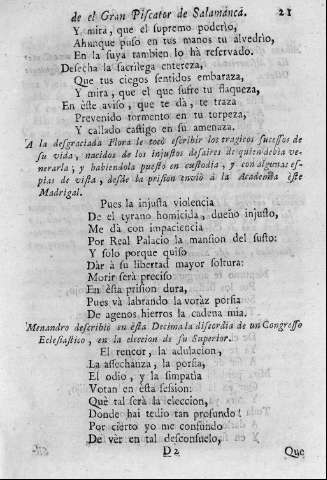 de el Gran Piscator de Salamanca. 21
Y mira, que el supremo poderìo,
Aunque puso en tus manos tu alvedrìo,
En la suya tambien lo hà reservado.
Desecha la sacrilega entereza,
Que tus ciegos sentidos embaraza,
Y mira, que el que sufre tu flaqueza,
En èste aviso, que te dà, te traza
Prevenido tormento en tu torpeza,
Y callado castigo en su amenaza.
A la desgraciada Flora le tocò escribir los tragicos sucessos de
su vida, nacidos de los injustos desaires de quien debia ve-
nerarla; y habiendola puesto en custodia, y con algunas es-
pias de vista, desde la prision enviò à la Academia èste
Madrigal.
Pues la injusta violencia
De el tyrano homicida, dueño injusto,
Me dà con impaciencia
Por Real Palacio la mansion del susto:
Y solo porque quiso
Dàr à su libertad mayor soltura:
Morir serà preciso
En èsta prision dura,
Pues và labrando la voràz porfia
De agenos hierros la cadena mia.
Menandro describiò en èsta Decima la discordia de un Congresso
Eclesiastico, en la eleccion de su Superior.
El rencor, la adulacion,
La assechanza, la porfia,
El odio, y la simpatìa
Votan en èsta session:
Què tal serà la eleccion,
Donde hai tedio tan profundo!
Por cierto yo me confundo
De vèr en tal desconsuelo,
D2 Que